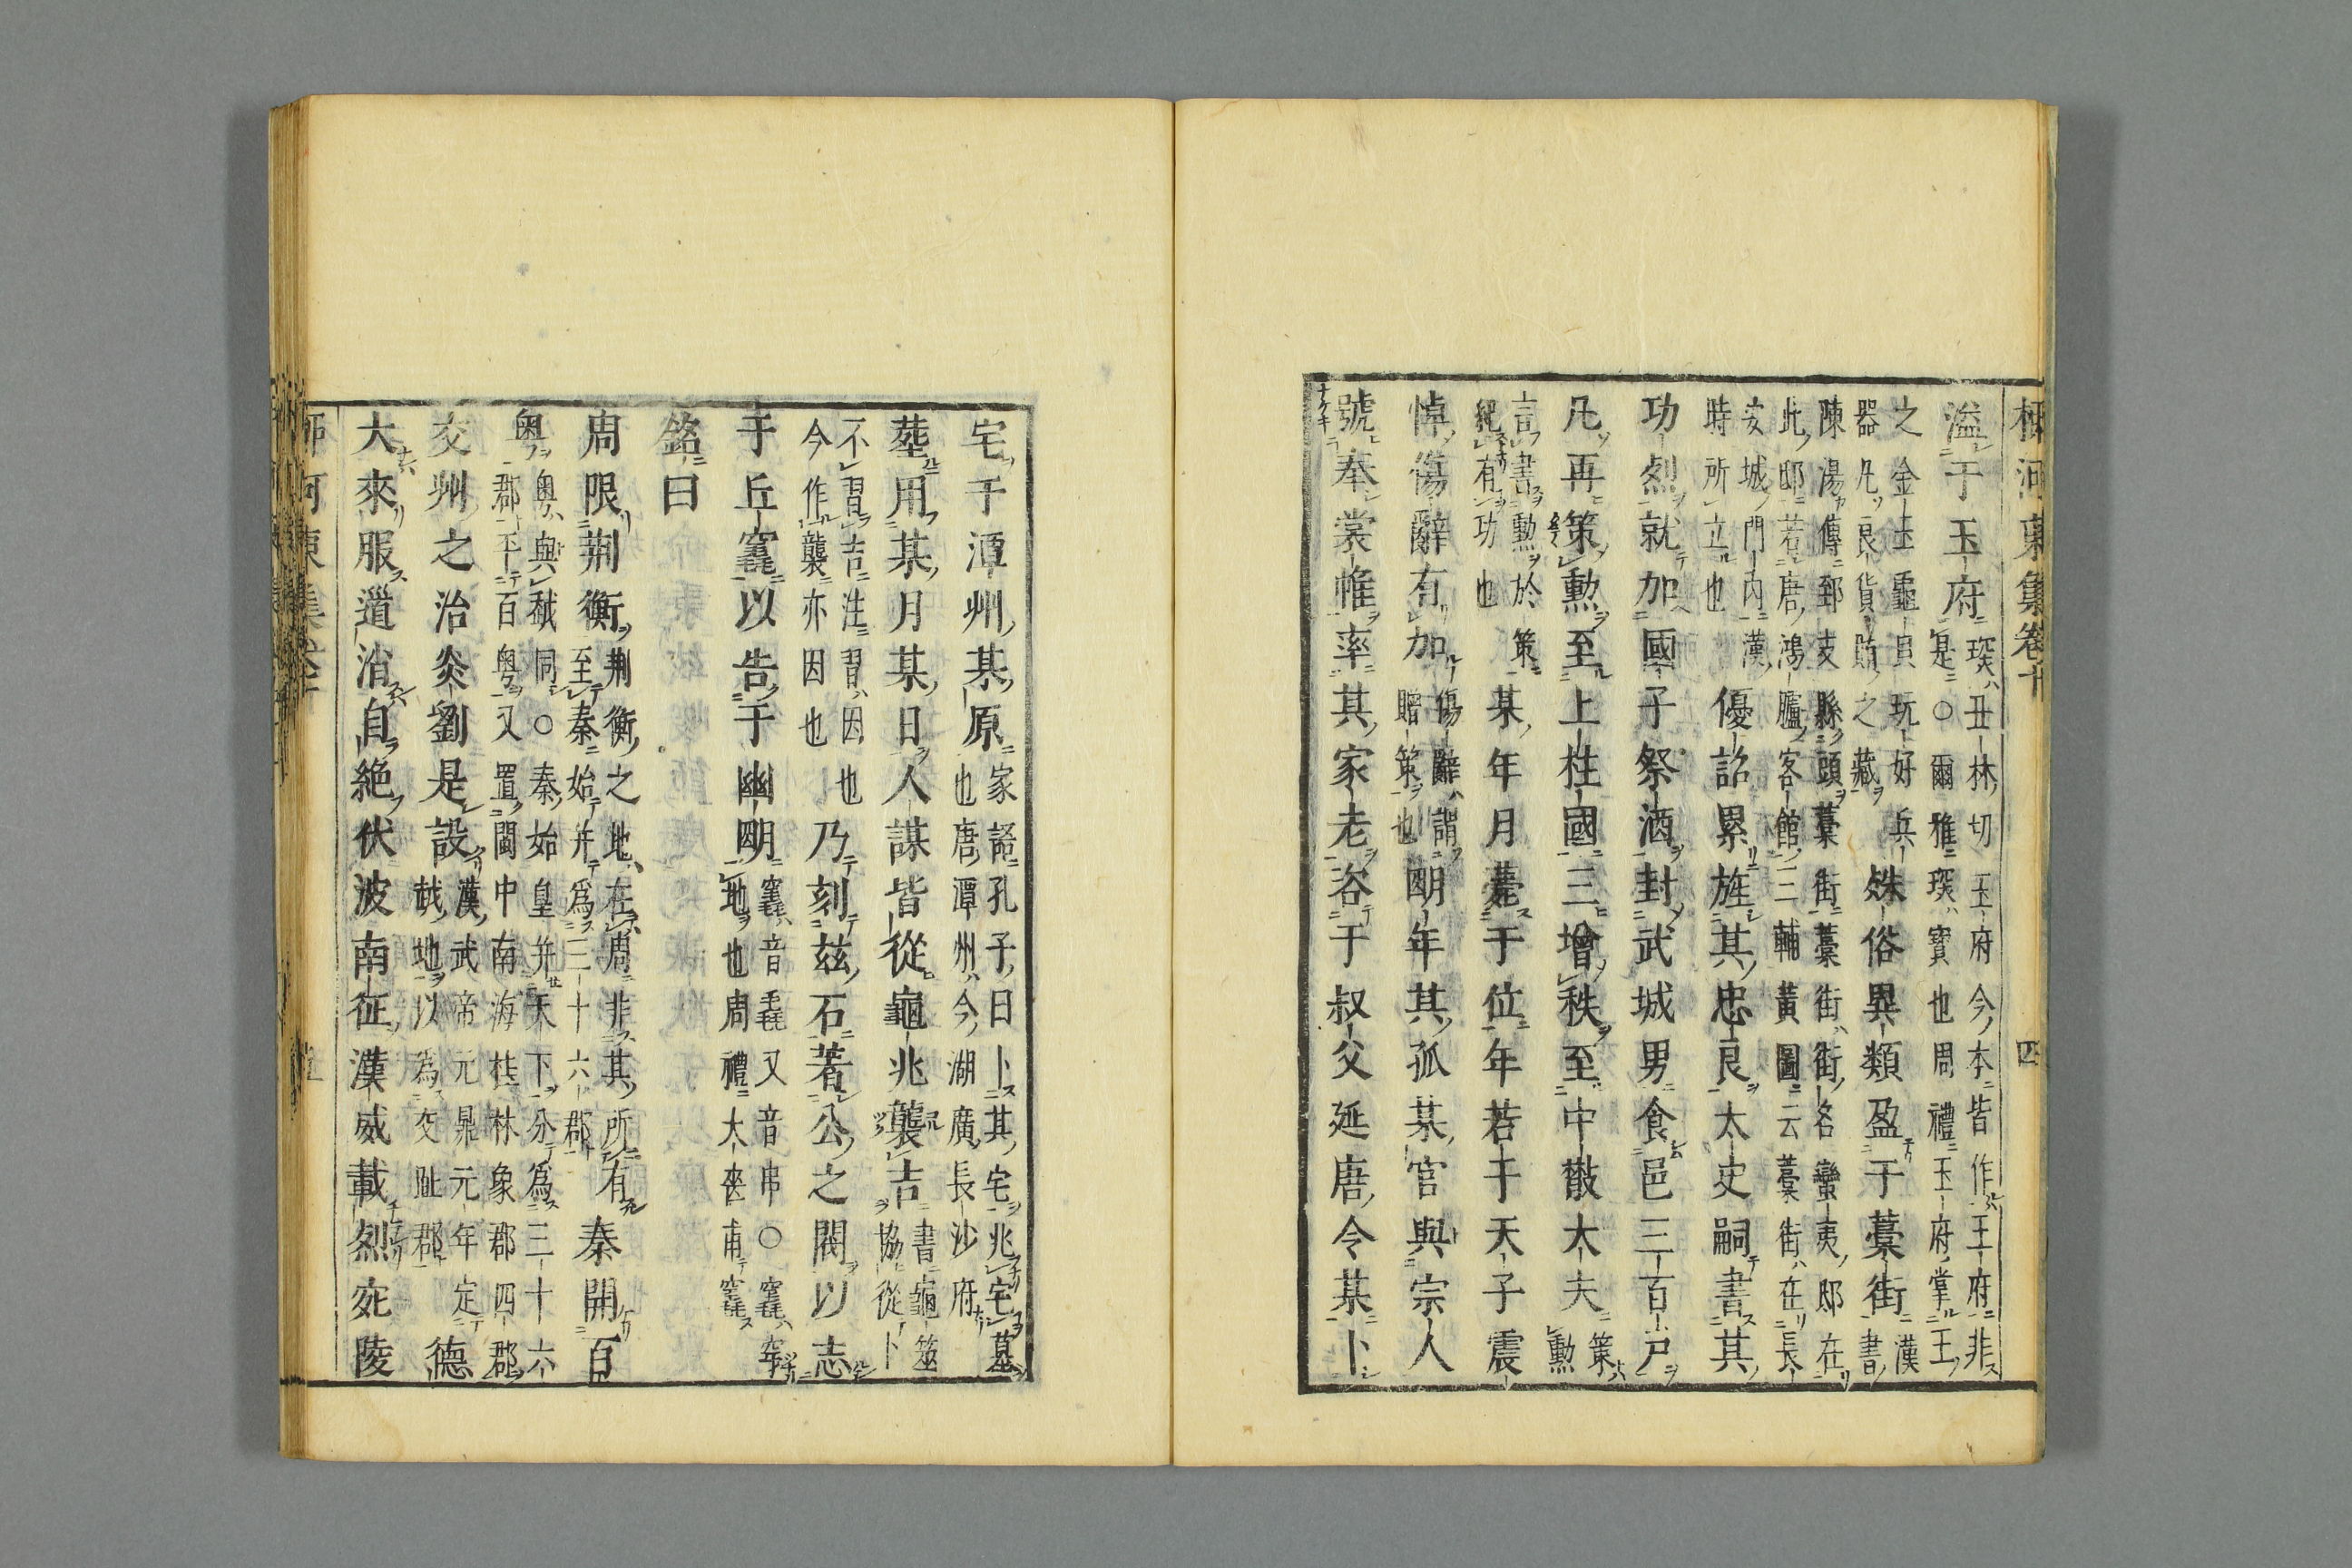 柳河東集卷十 四
溢于玉府琛丑林切玉府今本皆作王府非
是○爾雅琛寶也周禮玉府掌王
之金玉龜貝玩好兵
器凡良貨賄之藏殊俗異類盈于藁街漢書
陳湯傳郅支縣頭藁街藁街街名蠻夷邸在
此邸若唐鴻臚客館三輔黃圖云藁街在長
安城門内漢
時所立也優詔累旌其忠良太史嗣書其
功烈就加國子祭酒封武城男食邑三百戶
凡再策勲至上柱國三增秩至中散大夫策
勲
言書勲於策
紀有功也某年月薨于位年若干天子震
悼傷辭有加傷辭謂
贈策也明年其孤某官與宗人
號奉裳帷率其家老咨于叔父延唐令某卜
宅于潭州某原家語孔子曰卜其宅兆宅墓
也唐潭州今湖廣長沙府
葬用某月某日人謀皆從龜兆襲吉書龜筮
協從卜
不習吉注習因也
今作襲亦因也乃刻茲石著公之閥以志
于丘竁以告于幽明竁音毳又音串○竁穿
地也周禮大喪甫竁
銘曰
周限荆衡荆衡之地在周非其所有
至秦始并爲三十六郡秦開百
粤粤與越同○秦始皇并天下分爲三十六
郡平百粤又置閩中南海桂林象郡四郡
交州之治炎劉是設漢武帝元鼎元年定
越地以為交趾郡德
大來服道消自絶伏波南征漢威載烈宛陵
柳河東集卷十